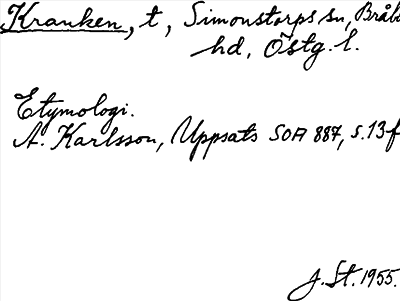 Kranken, t, Simonstorps sn, Bråbo
hd, Östg. l.
Etymologi.
A. Karlsson, Uppsats SOA 887, s. 13 f
J. St. 1955.